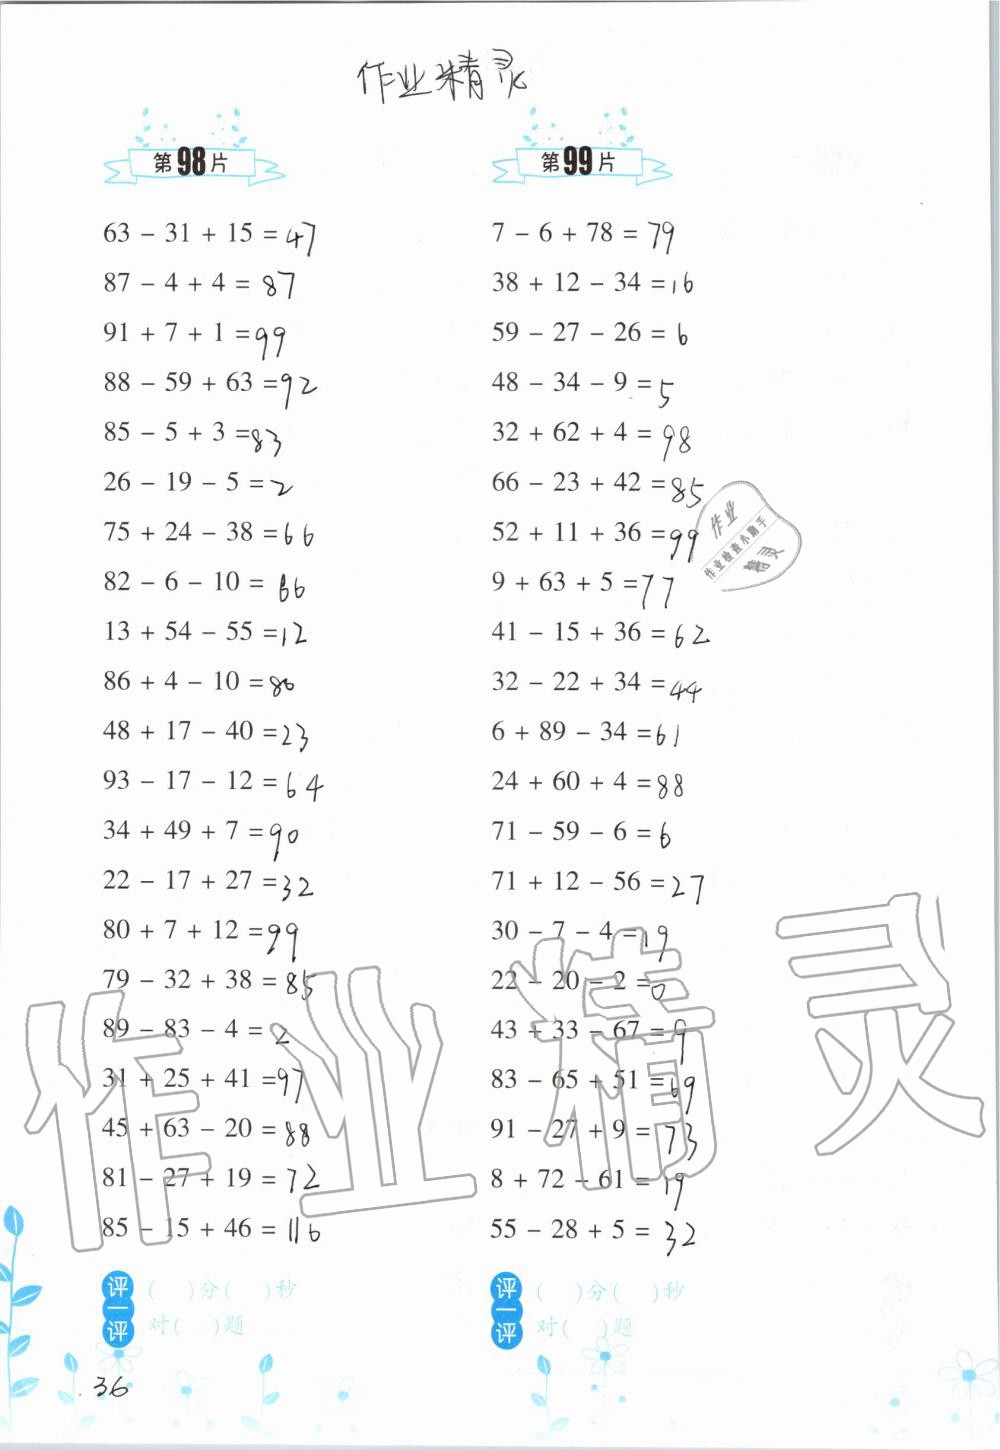 作业精灵
第98片
63 − 31 + 15 = 47
87 − 4 + 4 = 87
91 + 7 + 1 = 99
88 − 59 + 63 = 92
85 − 5 + 3 = 83
26 − 19 − 5 = 2
75 + 24 − 38 = 66
82 − 6 − 10 = 66
13 + 54 − 55 = 12
86 + 4 − 10 = 80
48 + 17 − 40 = 23
93 − 17 − 12 = 64
34 + 49 + 7 = 90
22 − 17 + 27 = 32
80 + 7 + 12 = 99
79 − 32 + 38 = 85
89 − 83 − 4 = 2
31 + 25 + 41 = 97
45 + 63 − 20 = 88
81 − 27 + 19 = 72
85 − 15 + 46 = 116
评一评
( )分( )秒
对( )题
36
第99片
7 − 6 + 78 = 79
38 + 12 − 34 = 16
59 − 27 − 26 = 6
48 − 34 − 9 = 5
32 + 62 + 4 = 98
66 − 23 + 42 = 85
52 + 11 + 36 = 99
9 + 63 + 5 = 77
41 − 15 + 36 = 62
32 − 22 + 34 = 44
6 + 89 − 34 = 61
24 + 60 + 4 = 88
71 − 59 − 6 = 6
71 + 12 − 56 = 27
30 − 7 − 4 = 19
22 − 20 − 2 = 0
43 + 33 − 67 = 9
83 − 65 + 51 = 69
91 − 27 + 9 = 73
8 + 72 − 61 = 19
55 − 28 + 5 = 32
评一评
( )分( )秒
对( )题
作业
作业检查小助手
精灵
作业精灵